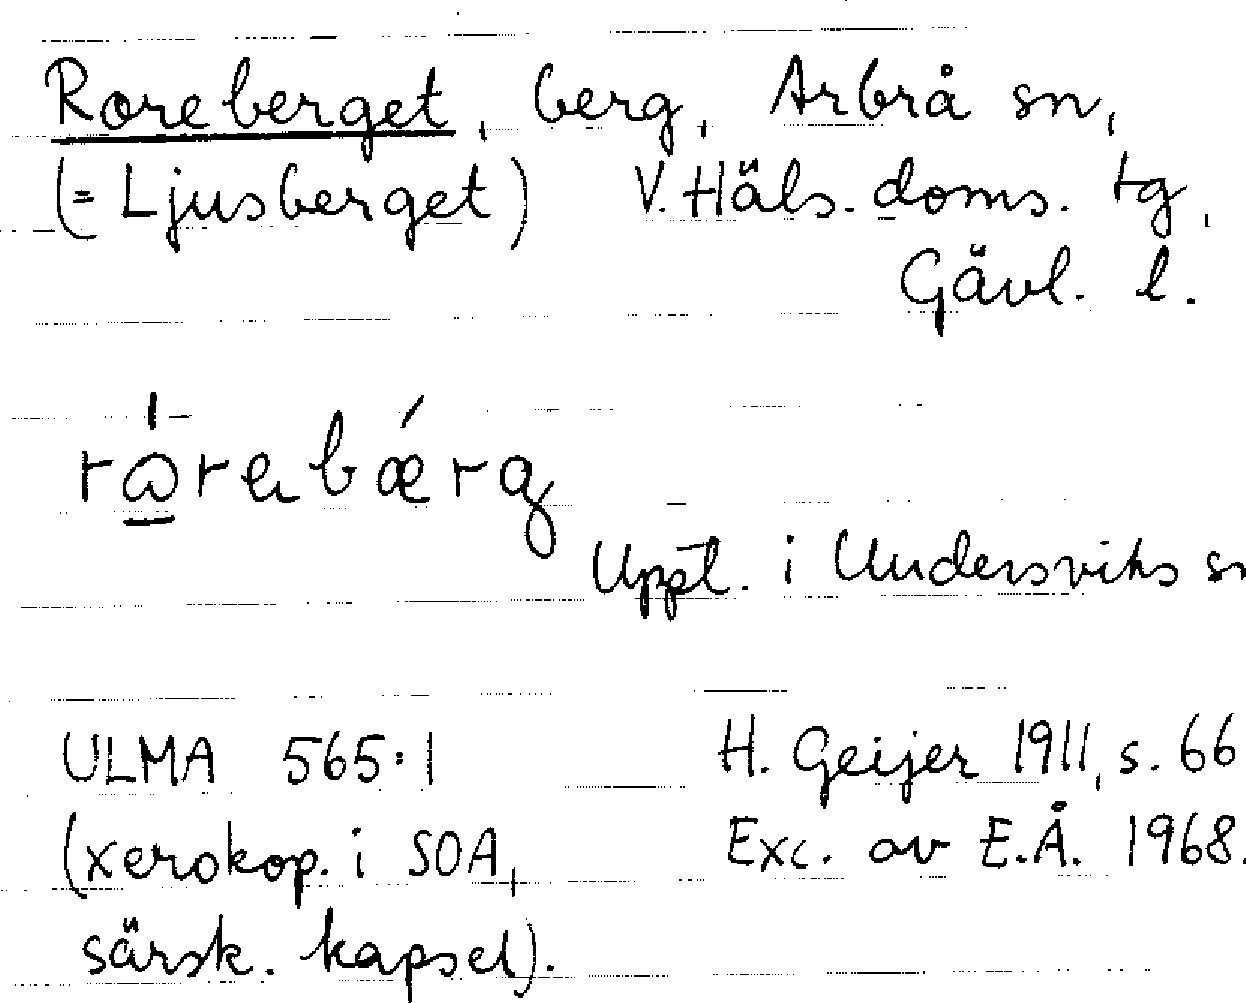 Roreberget, berg, Arbrå sn,
(= Ljusberget) V. Häls. doms. tg,
Gävl. l.
Uppt. i Undersviks sn
ULMA 565:1 H. Geijer 1911, s. 66
(xerokop. i SOA, Exc. av E.Å. 1968.
särsk. kapsel).